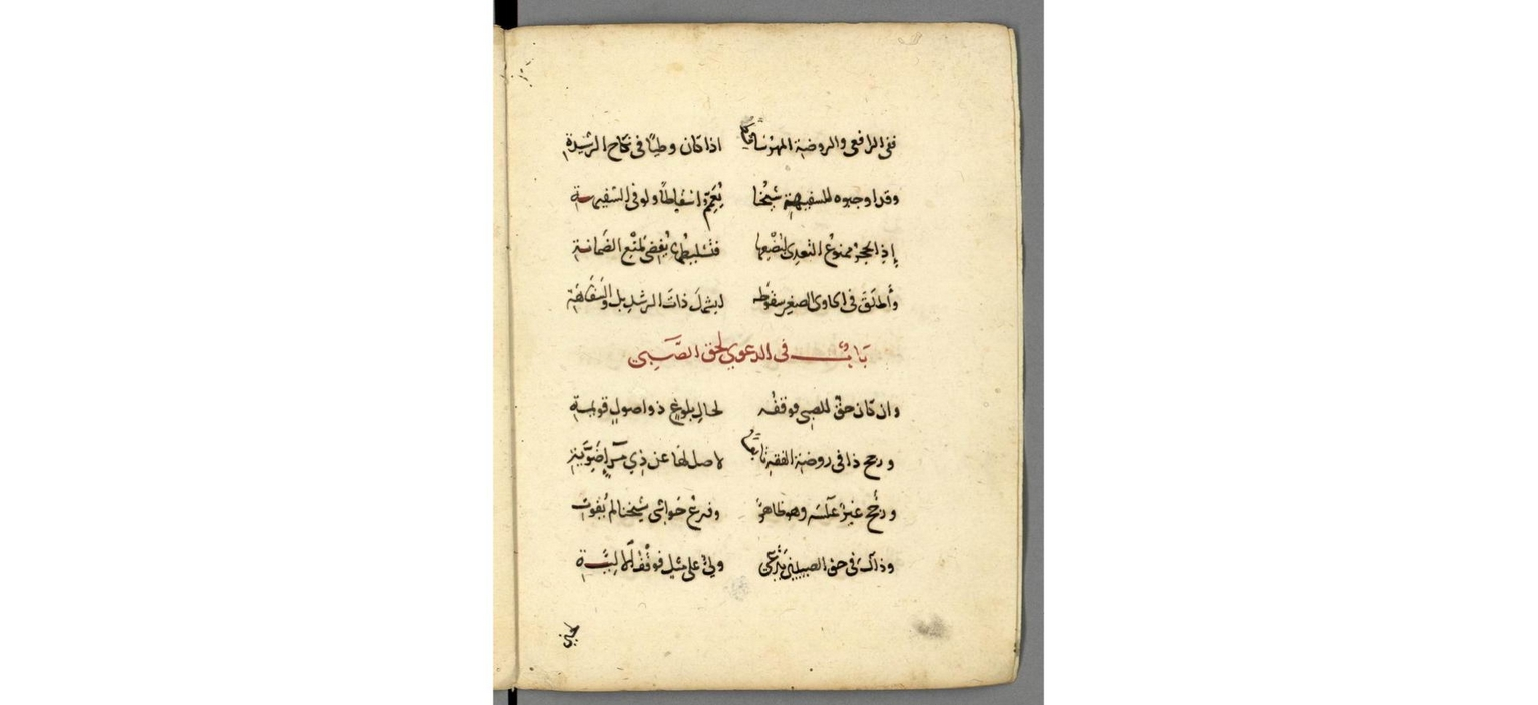 ففى الرافعى والروضة المهر ساقط اذا كان وطيًا فى نكاح الرشيدة
وقد اوجبوه للسفيهة شيخنا يُعَمِّم اسقاطًا ولو فى السفيهة
إذِ الحجرُ ممنوعُ التعدى لبُضْعِها فتسليطها يُفضى لمنْع الضمانة
وأطلقَ فى الحاوى الصغير سقوطه ليشملَ ذاتَ الرشدِ بل والسَّفَاهَة
بَابٌ فى الدعوى لحق الصَّبِى
وان كان حقٌ للصبى فوقفُه لحالِ بلوغٍ ذو اصولٍ قويمة
ورجح ذا فى روضة الفقه تابعًا لاصل لها عن ذي
ورُجِّح غيرُ عكسَه وهو ظاهرٌ وفرعُ حَواشى شيخنا لم يُفوت
وذاك فى حق الصبى يَدَّعى ولىٌّ على مثلٍ فوقْفٌ